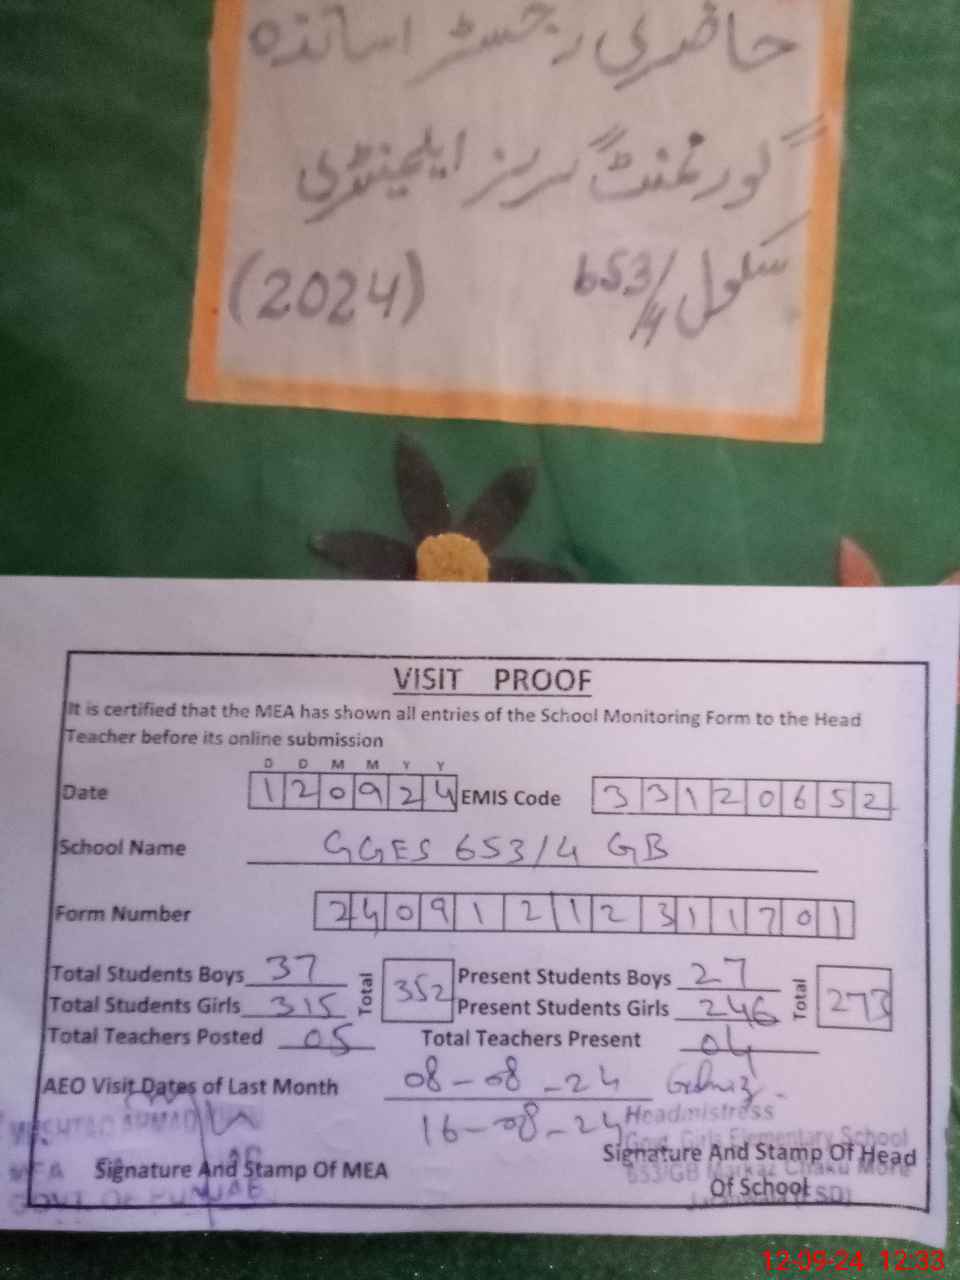 حاضری رجسٹر اساتذہ
گورنمنٹ گرلز ایلیمنٹری
سکول 653/4 (2024)
VISIT PROOF
It is certified that the MEA has shown all entries of the School Monitoring Form to the Head
Teacher before its online submission
D D M M Y Y
Date 120924 EMIS Code 33120652
School Name GGES 653/4 GB
Form Number 24091212311701
Total Students Boys 37 Total 352 Present Students Boys 27 Total 273
Total Students Girls 315 Present Students Girls 246
Total Teachers Posted 05 Total Teachers Present 04
AEO Visit Dates of Last Month 08-08-24
16-08-24
Headmistress
Govt. Girls Elementary School
653/GB Markaz
MUSHTAQ AHMAD
MEA
GOVT OF PUNJAB
Signature And Stamp Of MEA
Signature And Stamp Of Head
Of School
12-09-24 12:33